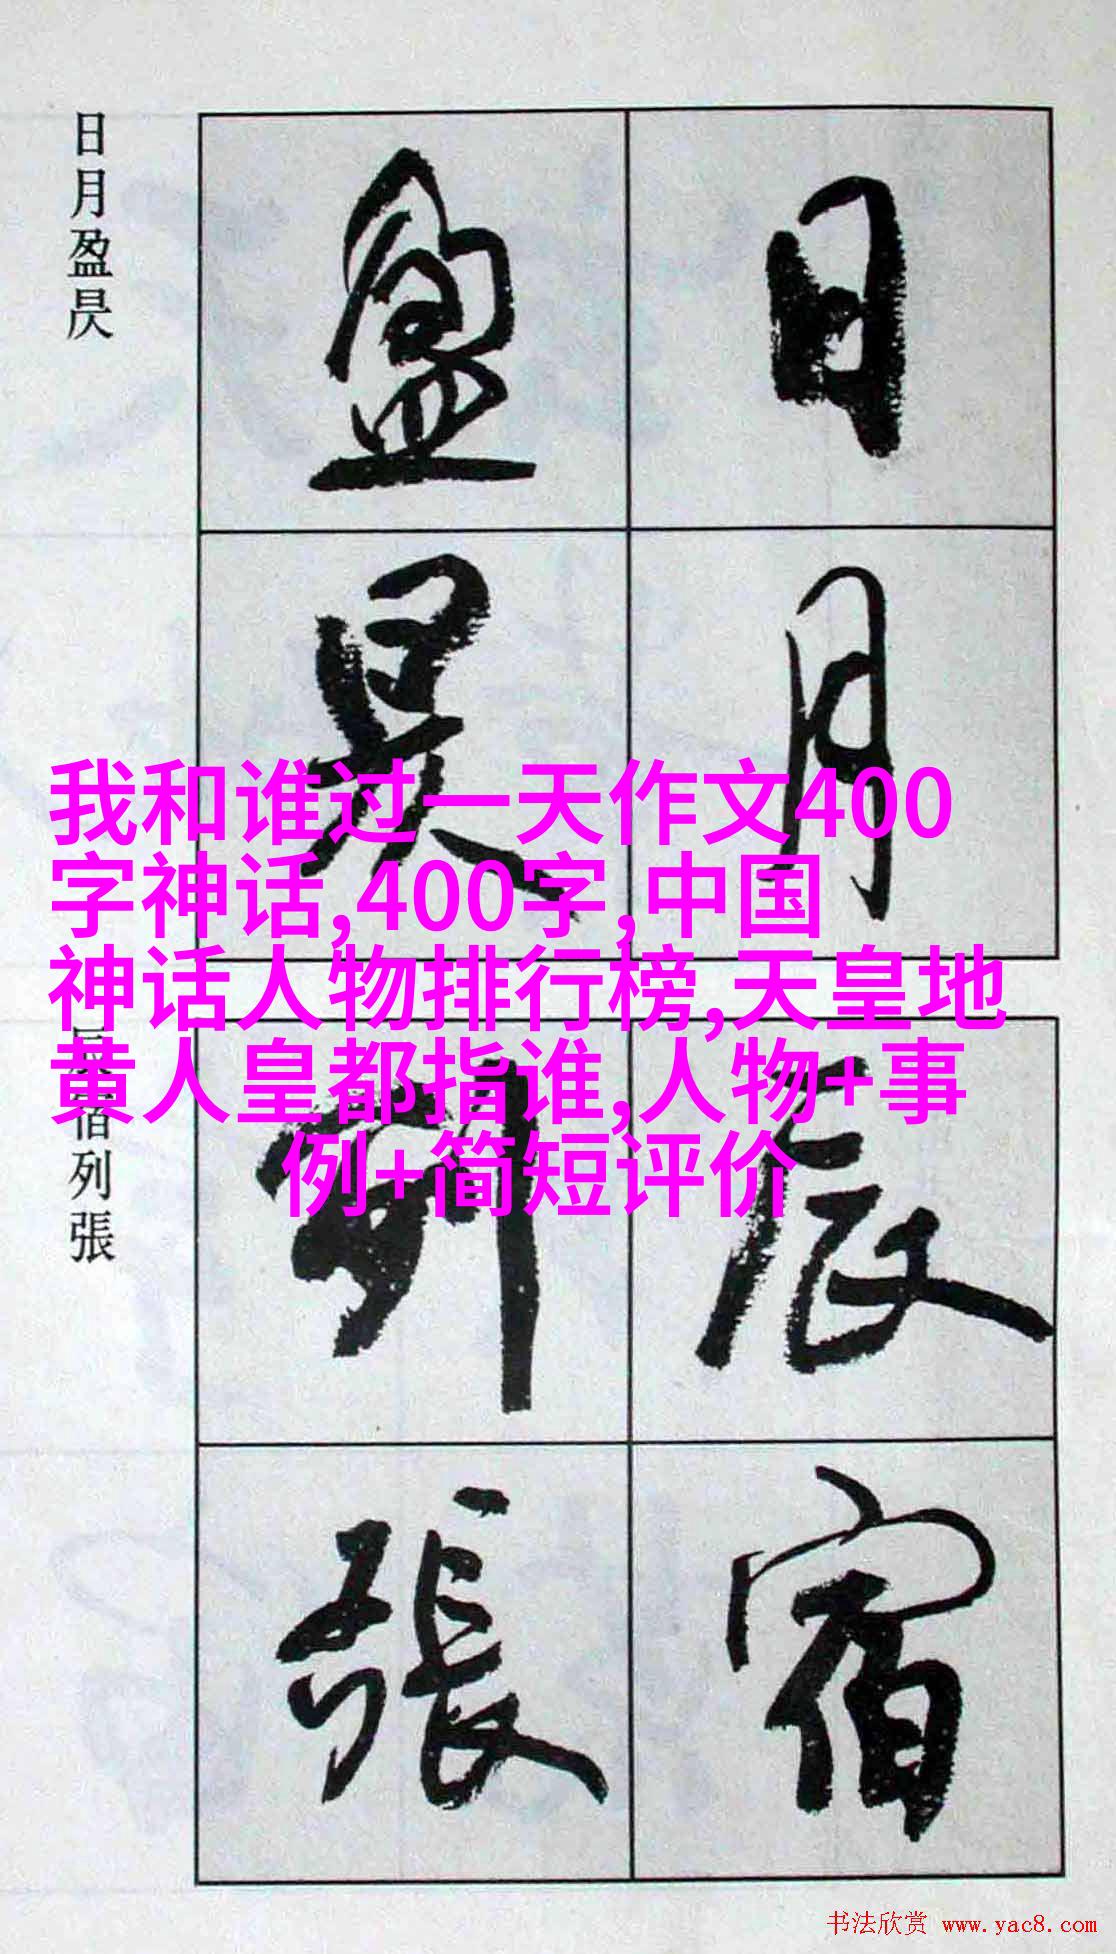 日月盈昃
盈 日
昃 月
我和谁过一天作文400
字神话,400字,中国
神话人物排行榜,天皇地
黄人皇都指谁,人物+事
例+简短评价
辰宿列張
列 辰
張 宿
书法欣赏 www.yac8.com